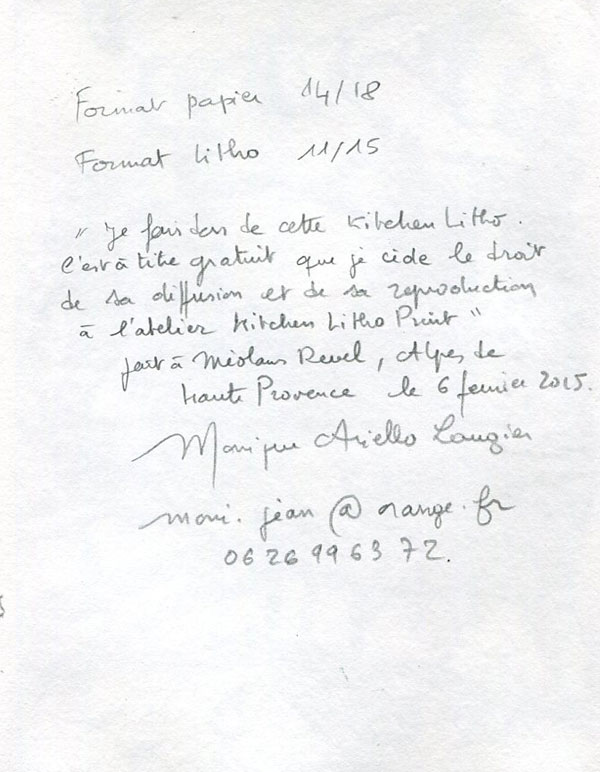 Format papier 14/18
Format Litho 11/15
" Je fais don de cette Kitchen Litho.
C'est à titre gratuit que je cède le droit
de sa diffusion et de sa reproduction
à l'atelier Kitchen Litho Print "
fait à Méolans Revel, Alpes de
Haute Provence le 6 fevrier 2015.
Monique Ariello Laugier
moni.jean@orange.fr
06 26 99 63 72.